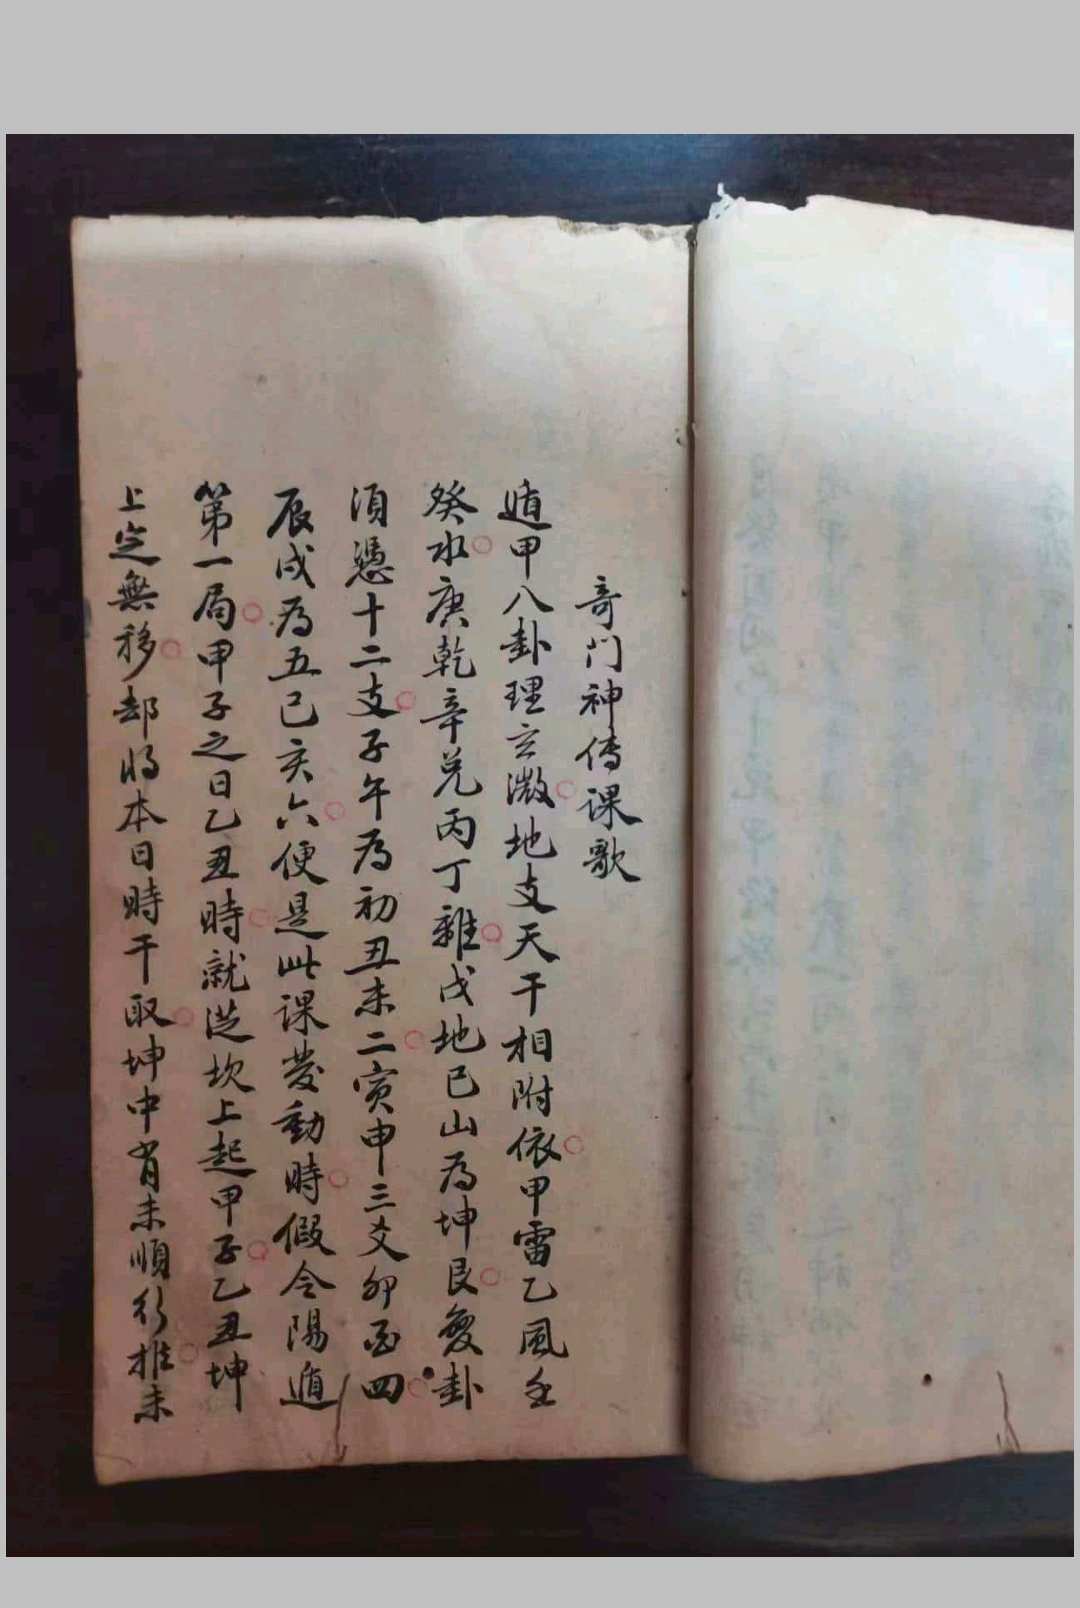 奇門神傳课歌
遁甲八卦理玄微地支天干相附依甲雷乙風壬
癸水庚乾辛兑丙丁離戊地己山為坤艮變卦
須憑十二支子午為初丑未二寅申三爻卯酉四
辰戌為五巳亥六便是此课發動時假令陽遁
第一局甲子之日乙丑時就從坎上起甲子乙丑坤
上定無移却將本日時干取坤中肖未順行推未